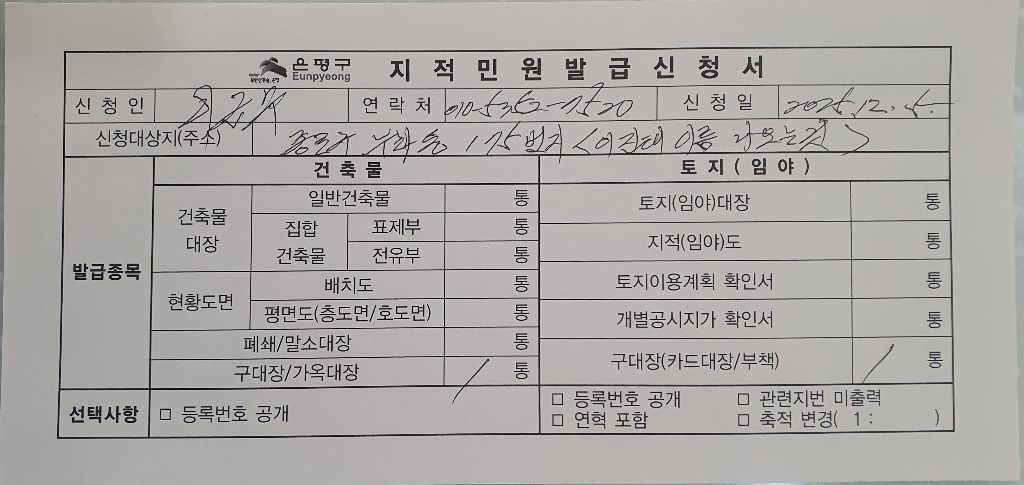 은평구
Eunpyeong
지적민원발급신청서
신청인 연락처 010-5352-1520 신청일 2025. 12. 5.
신청대상지(주소) 종로구 부암동 175번지 <이건대 이름 나오는것>
발급종목 건축물 토지(임야)
건축물 대장 일반건축물 통 토지(임야)대장 통
집합 건축물 표제부 통 지적(임야)도 통
전유부 통
현황도면 배치도 통 토지이용계획 확인서 통
평면도(층도면/호도면) 통 개별공시지가 확인서 통
폐쇄/말소대장 통
구대장/가옥대장 / 통 구대장(카드대장/부책) / 통
선택사항 □ 등록번호 공개 □ 등록번호 공개 □ 관련지번 미출력
□ 연혁 포함 □ 축적 변경( 1 : )